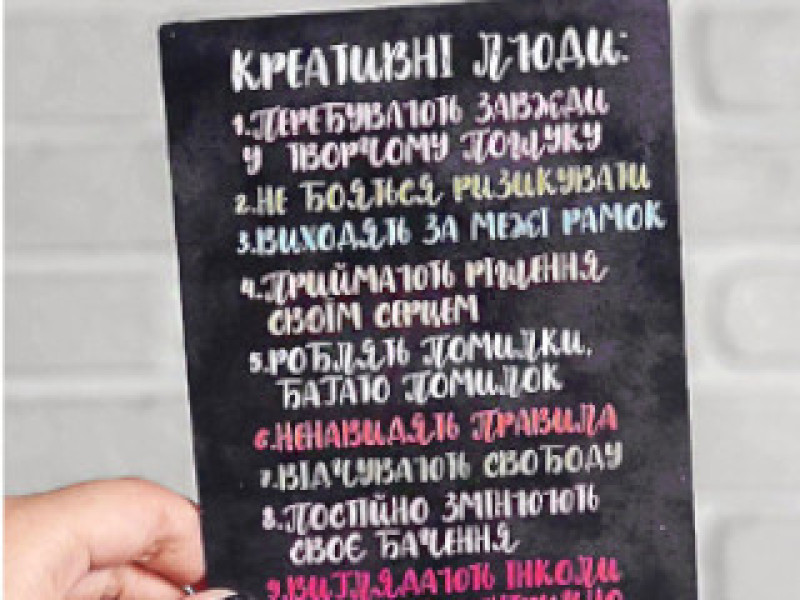 КРЕАТИВНІ ЛЮДИ:
1.ПЕРЕБУВАЮТЬ ЗАВЖДИ
У ТВОРЧОМУ ПОШУКУ
2.НЕ БОЯТЬСЯ РИЗИКУВАТИ
3.ВИХОДЯТЬ ЗА МЕЖІ РАМОК
4.ПРИЙМАЮТЬ РІШЕННЯ
СВОЇМ СЕРЦЕМ
5.РОБЛЯТЬ ПОМИЛКИ,
БАГАТО ПОМИЛОК
6.НЕНАВИДЯТЬ ПРАВИЛА
7.ВІДЧУВАЮТЬ СВОБОДУ
8.ПОСТІЙНО ЗМІНЮЮТЬ
СВОЄ БАЧЕННЯ
9.ВИГЛЯДАЮТЬ ІНКОЛИ